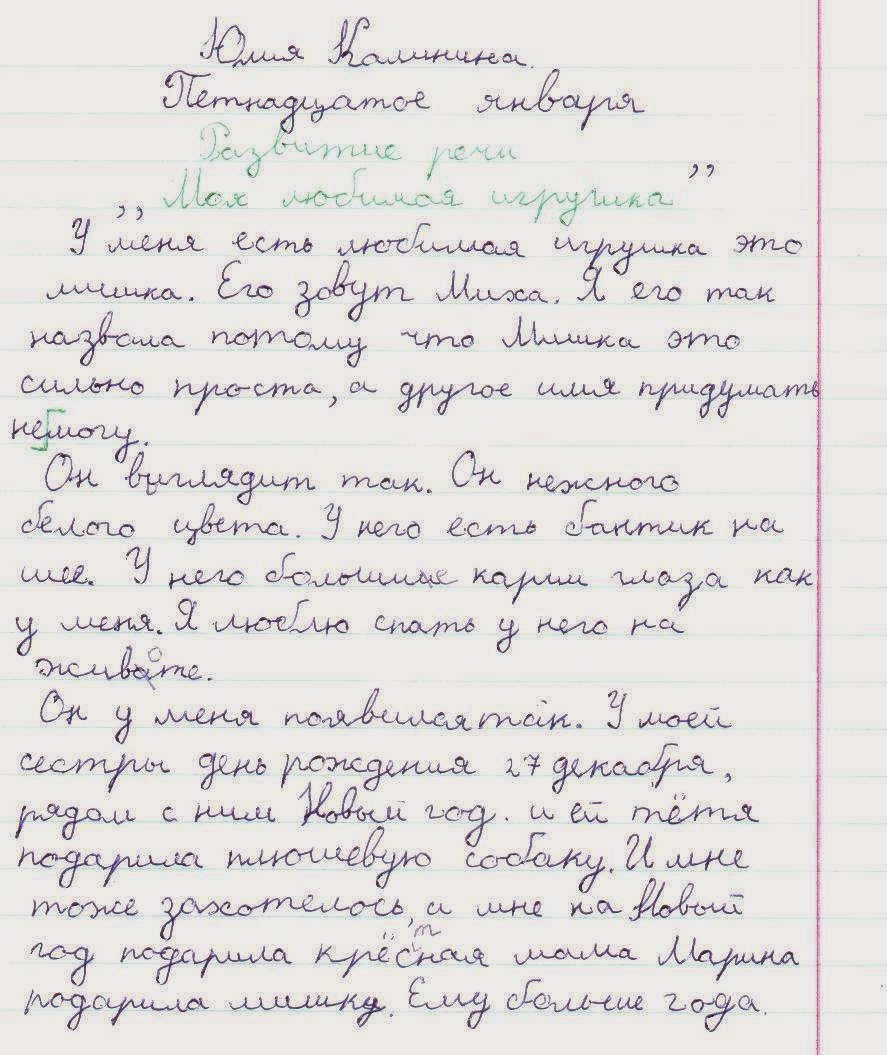 Юлия Калинина.
Петнадцатое января
Развитие речи
,, Моя любимая игрушка ”
У меня есть любимая игрушка это
мишка. Его зовут Миха. Я его так
назвала потому что Мишка это
сильно проста, а другое имя придумать
немогу.
Он выглядит так. Он нежного
белого цвета. У него есть бантик на
шее. У него большые карии глаза как
у меня. Я люблю спать у него на
животе.
Он у меня появилая так. У моей
сестры день рождения 27 декабря,
рядом с ним Новый год. и ей тётя
подарила плюшевую собаку. И мне
тоже захотелось, и мне на Новый
год подарила крёстная мама Марина
подарила мишку. Ему больше года.